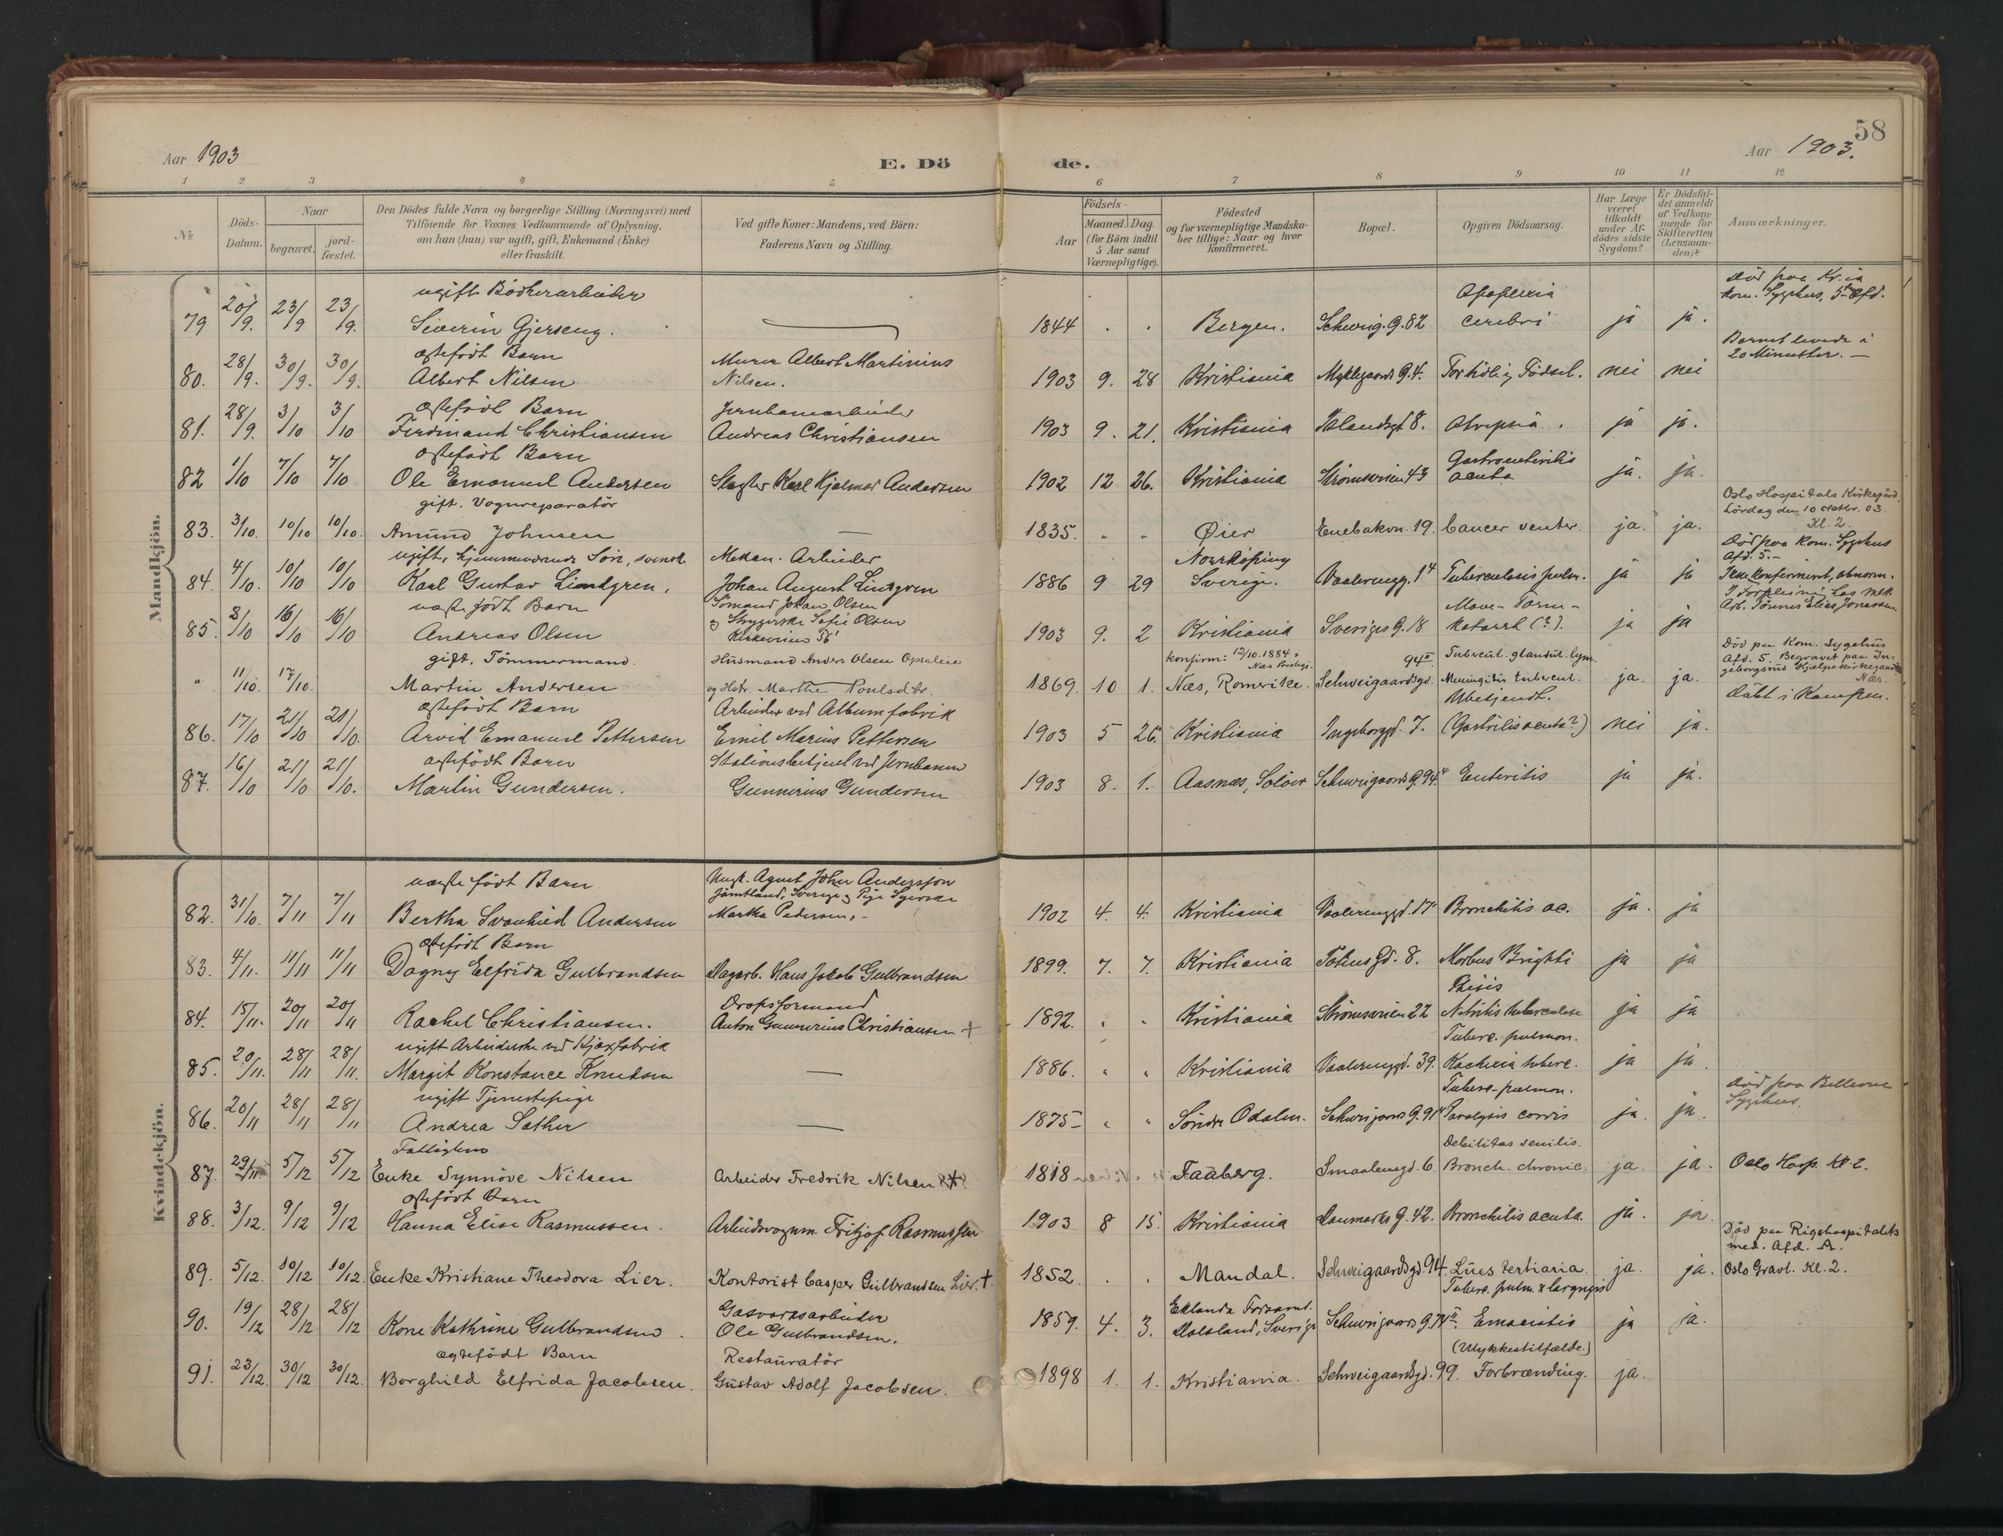 58
Aar 1903
E. Dö
de.
Aar 1903.
1 2 3 4 5 6 7 8 9 10 11 12
No
Döds-Datum.
Naar
begravet.
jordfæstet.
Den Dödes fulde Navn og borgerlige Stilling (Næringsvei) med Tilföiende for Voxnes Vedkommende af Oplysning, om han (hun) var ugift, gift, Enkemand (Enke) eller fraskilt.
Ved gifte Koner: Mandens, ved Börn: Faderens Navn og Stilling.
Födsels-
Aar
Maaned
Dag.
(for Börn indtil 5 Aar samt Værnepligtige).
Födested og for værnepligtige Mandskaber tillige: Naar og hvor konfirmeret.
Bopæl.
Opgiven Dödsaarsag.
Har Læge været tilkaldt under Afdödes sidste Sygdom?
Er Dödsfaldet anmeldt af Vedkommende for Skifteretten (Lensmanden)?
Anmærkninger.
Mandkjön.
ugift Bödkerarbeider Apoplexia Död paa Kr.ia
79 20/9. 23/9 23/9. Severin Gjerseng. 1844 . . Bergen. Schweig. G. 82 cerebri ja ja. Kom. Sygehus, 5te Afd.
ægtefödt Barn Murer Albert Martinius Barnet levede i
80. 28/9. 30/9. 30/9. Albert Nilsen Nilsen. 1903 9. 28 Kristiania G. 4. For tidlig Födsel. nei nei 20 Minutter. —
ægtefödt Barn Jernbanearbeider
81. 28/9 3/10 3/10 Ferdinand Christiansen Andreas Christiansen 1903 9. 21. Kristiania 8. Atrepsia . ja ja.
ægtefödt Barn Gastroenteritis
82 1/10 7/10 7/10 Ole Emanuel Andersen Slagter Karl Hjalmar Andersen 1902 12 26. Kristiania Strömsveien 43 acuta ja. ja.
gift. Vognreparatör Oslo Hospitals Kirkegård
Lördag den 10 oktbr. 03.
83. 3/10. 10/10 10/10. Amund Johnsen — 1835. " " Øier Enebakvn. 19 Cancer venter. ja. ja. Kl. 2.
ugift, hjemmeværende Sön, svensk Mekan. Arbeider Norrköping Död paa Kom. Sygehus
Afd. 5. —
84. 4/10. 10/10 10/10 Karl Gustav Lindgren. Johan August Lindgren 1886 9 29 Sverige. Vaalerengg. 14 Tuberculosis pulm. ja ja Ikke konfirmeret, abnorm.
uægtefödt Barn Sömand Johan Olsen Mave-Tarm- I Forpleining hos Mek.
85. 8/10 16/10 16/10 Andreas Olsen og Strygerske Sofie Olsen 1903 9. 2 Kristiania Sveriges G. 18 katarrh (?). ja ja Arb. Tönnes Elias Jonassen
gift. Tömmermand. Husmand Anders Olsen Opsaleie konfirm: 12/10. 1884 i Næs Prstegj. 94 II Tubercul. glandul. lym. Död paa Kom. Sygehus
Afd. 5. Begravet paa Ingeborgsrud Hjælpekirkegaard
" 11/10. 17/10. Martin Andersen og Hstr. Marthe Poulsdtr. 1869. 10 1. Næs, Romerike. Schweigaardsgd. Meningitis tubercul. ja. ja. Næs.
ægtefödt Barn Arbeider ved Albumfabrik Ubekjendt. Döbt i Kampen.
86. 17/10 21/10 21/10. Arvid Emanuel Pettersen Emil Marius Pettersen 1903 5 26. Kristiania Ingeborggd. 7. (Gastritis acuta?) nei ja.
ægtefödt Barn Stationsbetjent ved Jernbanen
87. 16/10 21/10 21/10. Martin Gundersen. Gunnerius Gundersen 1903 8. 1. Aasnæs, Solöer Schweigaards G. 94.4 Enteritis ja ja.
Kvindekjön.
uægtefödt Barn Agent John Andersson
Jämtland, Sverige og Pige
82. 31/10. 7/11 7/11 Bertha Svanhild Andersen Martha Pedersen. - 1902 4. 4. Kristiania Vaalerenggd. 17 Bronchitis ac. ja. ja
ægtefödt Barn
83. 4/11. 11/11 11/11 Dagny Elfrida Gulbrandsen Dagarb. Hans Jakob Gulbrandsen 1899. 7. 7. Kristiania Totens Gd. 8. Morbus Brighti ja ja
Dropsformand Phtisis
84. 15/11. 20/11 20/11 Rachel Christiansen. Anton Gunnerius Christiansen + 1892. " . Kristiania Strömsveien 22 ja ja
ugift Arbeiderske ved Kjexfabrik Tuberc. pulmon.
85. 20/11. 28/11 28/11. Margit Konstance Knudsen — 1886. " " Kristiania Vaalerenggd. 39. Kachexia tuberc. ja ja.
ugift Tjenestepige Tuberc. pulmon. Död paa Bellevue
86. 20/11 28/11 28/11 Andrea Sather — 1875 — " " Söndre Odalen. Schweigaards G. 91 Paralysis cordis ja. ja. Sygehus.
Fattiglem Debilitas senilis.
87. 29/11 5/12 5/12 Enke Synnöve Nilsen Arbeider Fredrik Nilsen 1818 Faaberg. Smaalensgd. 6. Bronch. chronic. ja. ja. Oslo Hosp. Kl. 2.
ægtefödt Barn
88. 3/12. 9/12 9/12 Hanna Elise Rasmussen. Arbeidsvogm. Fritjof Rasmussen 1903. 8 15. Kristiania Danmarks G. 42. Bronchitis acuta. ja. ja. Död paa Rigshospitalets
med. Afd. A.
89. 5/12. 10/12 10/12. Enke Kristiane Theodora Lier. Kontorist Casper Gulbrandsen Lier. + 1852. . . Mandal. Schweigaardsgd. 94 Lues tertiaria ja. ja. Oslo Gravl. Kl. 2.
Gasværksarbeider Forsaml. Tuberc. pulm. & laryngis
90. 19/12 28/12 28/12 Kone Kathrine Gulbrandsen. Ole Gulbrandsen. 1859. 4. 3. Dalsland, Sverige Schweigaards G. 74 II. ja ja.
ægtefödt Barn Restauratör (Ulykkestilfælde.)
91. 23/12. 30/12 30/12. Borghild Elfrida Jacobsen. Gustav Adolf Jacobsen. 1898 1. 1. Kristiania. Schweigaardsgd. 99. Forbrænding. ja.